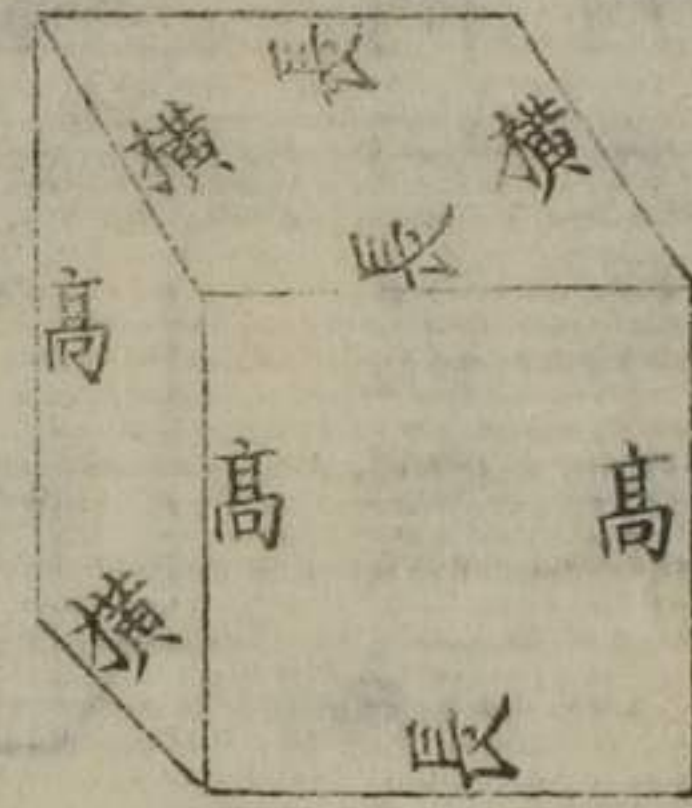 長
橫
橫
長
高
高
高
橫
長